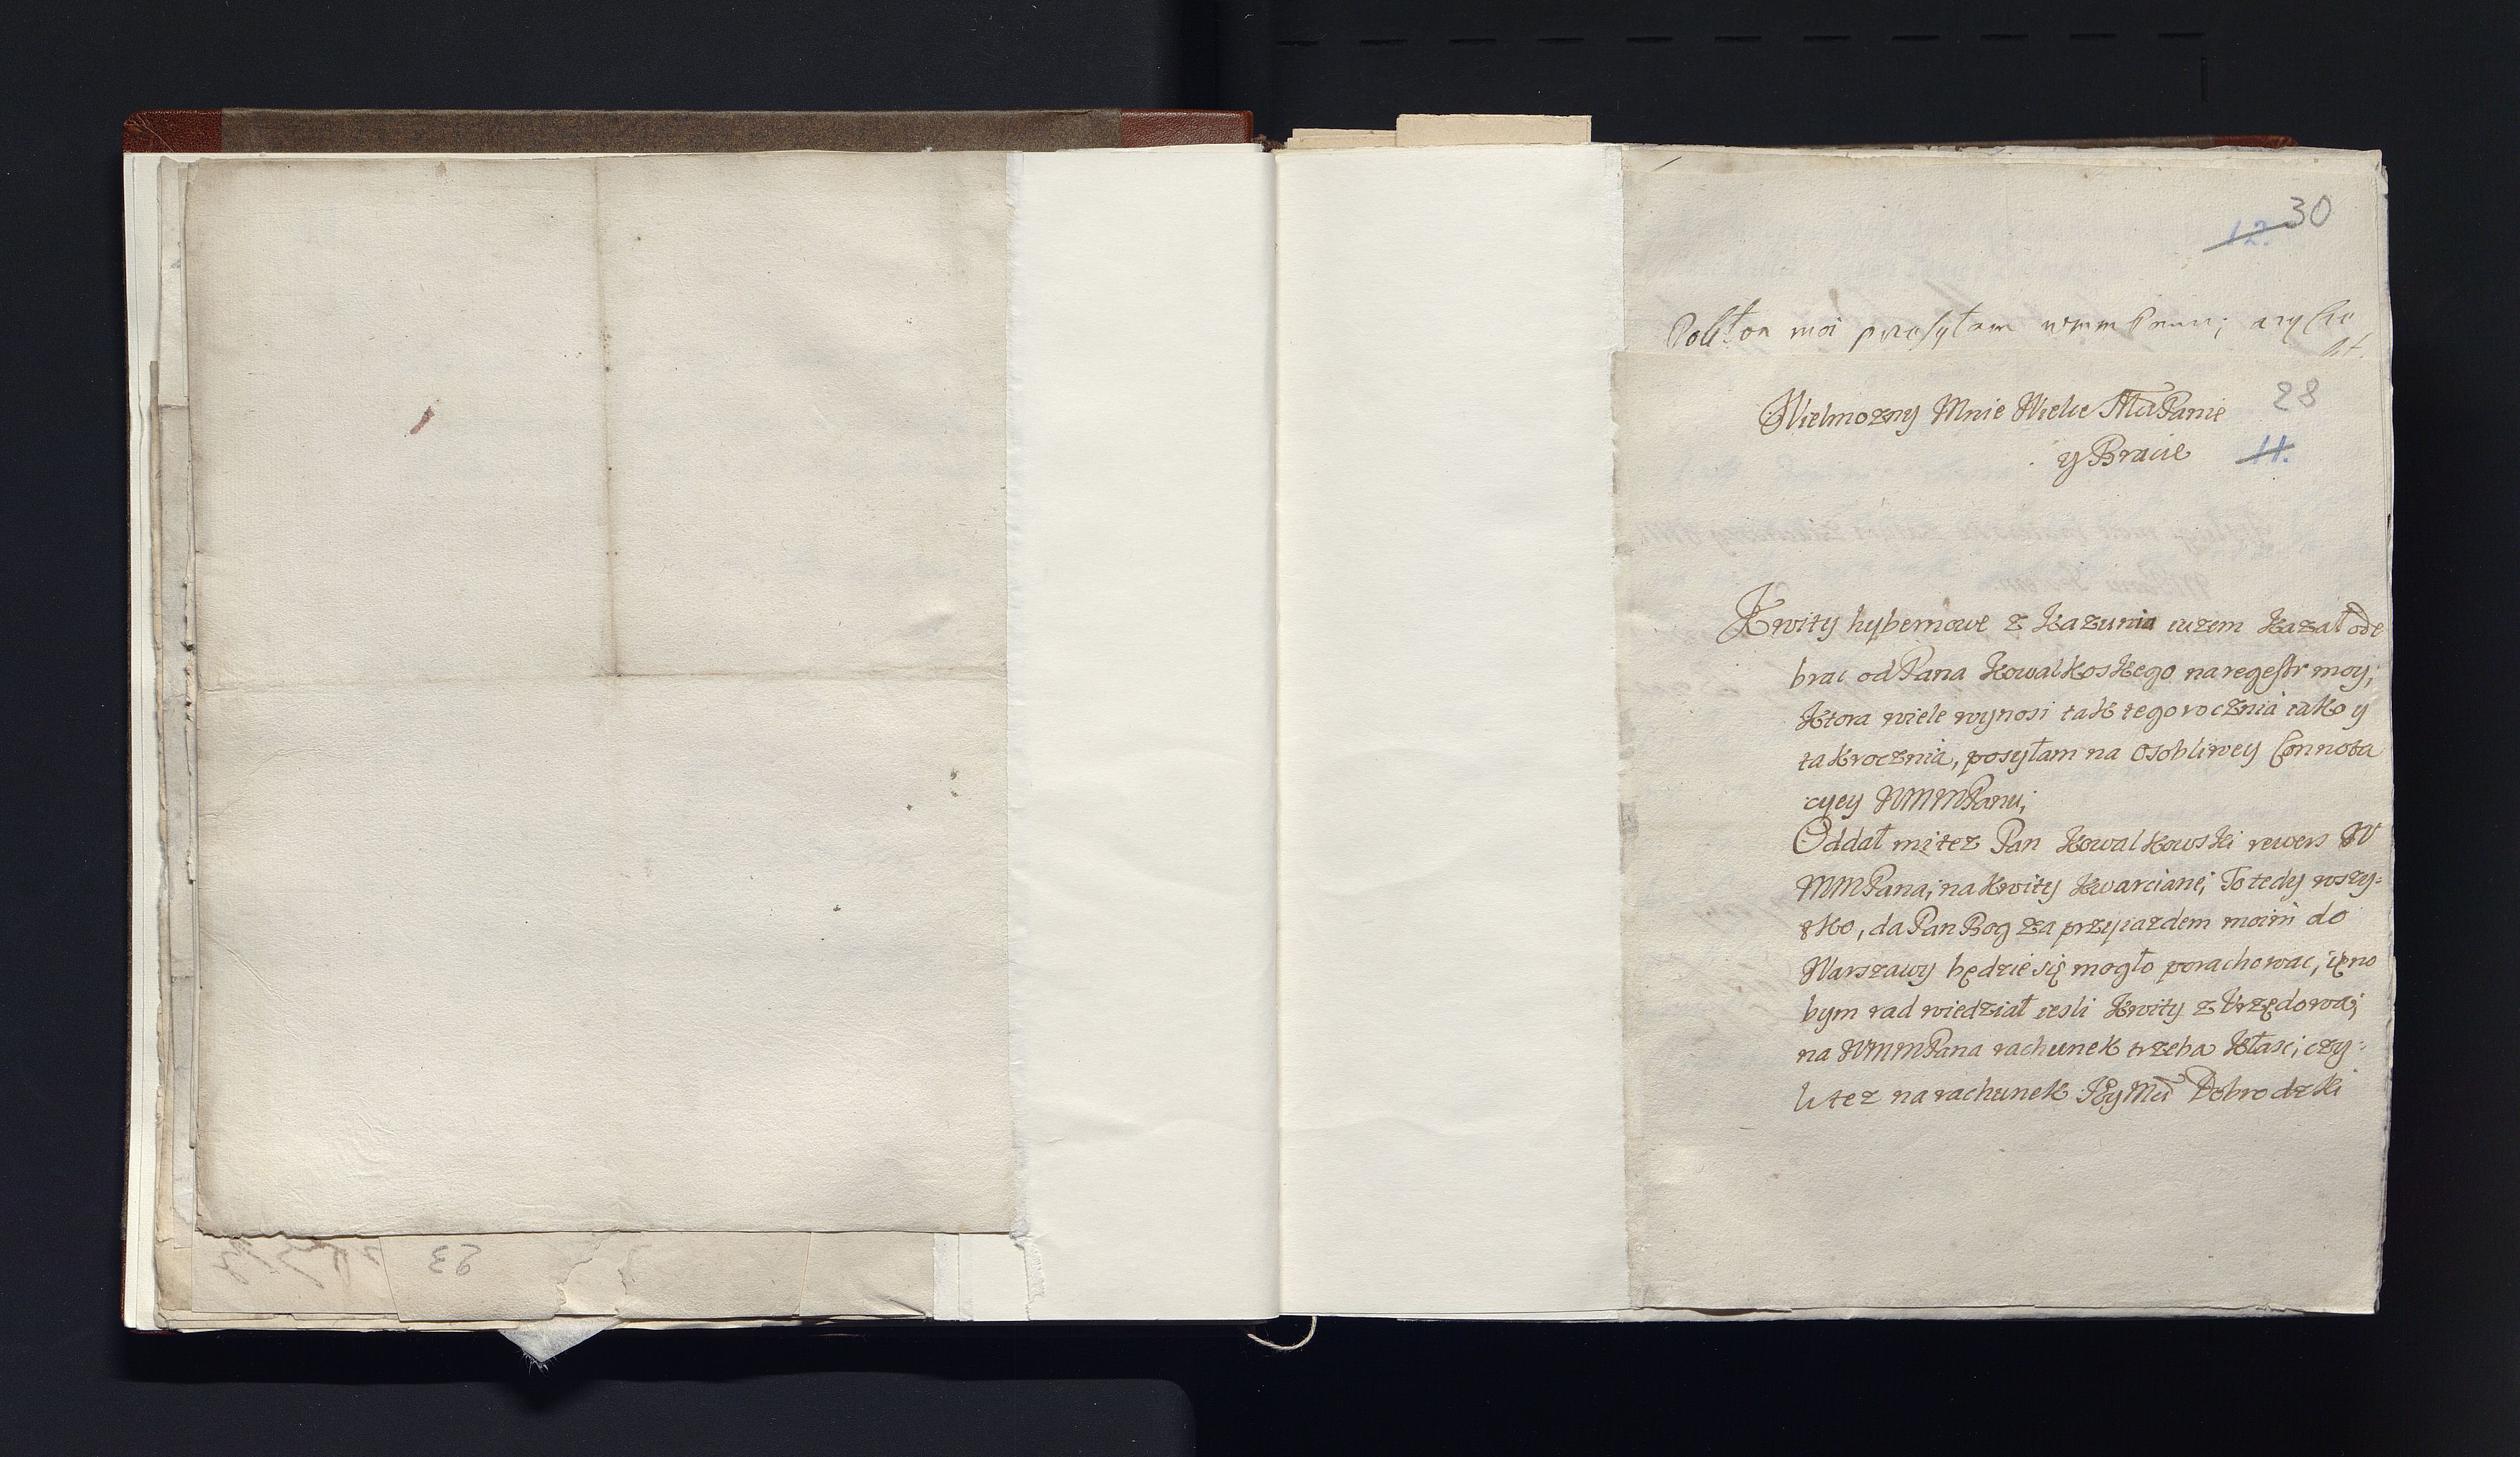 30
12.
Pokłon moi przesyłam wmmPanu;
28
Wielmozny Mnie Wielce MciPanie
y Bracie
11.
Kwity hybernowe z Kazunia iuzem Kazał ode
brac od Pana Kowalkoskego na regestr moy;
Ktora wiele wynosi tak tegorocznia iako y
takrocznia, posyłam na osobliwey Connota
cyey WMMPanu;
Oddał mi tez Pan Kowalkowski rewers W
MMPana; na Kwity Kwarciane; To tedy wszy=
sko, da Pan Bog za przyiazdem moim do
Warszawy będzie się mogło porachowac, ięno
bym rad wiedział iesli Kwity z Urzędowa;
na WMMPana rachunek trzeba Kłasc; czy=
li tez na rachunek JEyMci Dobrodzki
23